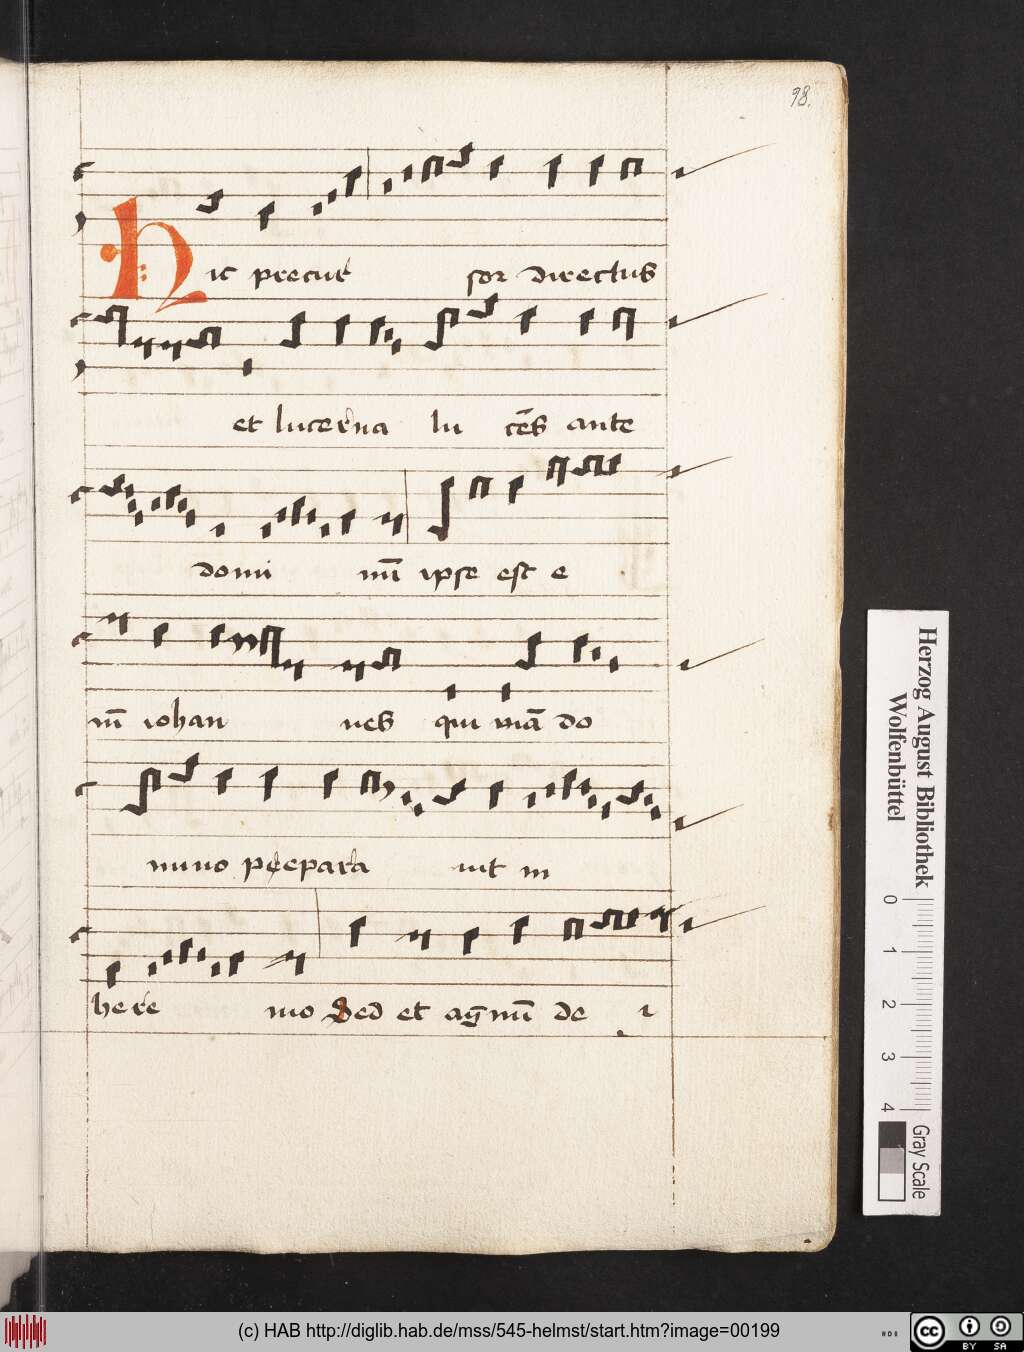 98.
Hic precur sor directus
et lucerna lu cēs ante
domi nū ipse est e
nī iohan nes qui viā do
mino prepara uit in
here mo Sed et agnū de i
Herzog August Bibliothek
Wolfenbüttel
0 1 2 3 4
Gray Scale
(c) HAB http://diglib.hab.de/mss/545-helmst/start.htm?image=00199
cc BY SA